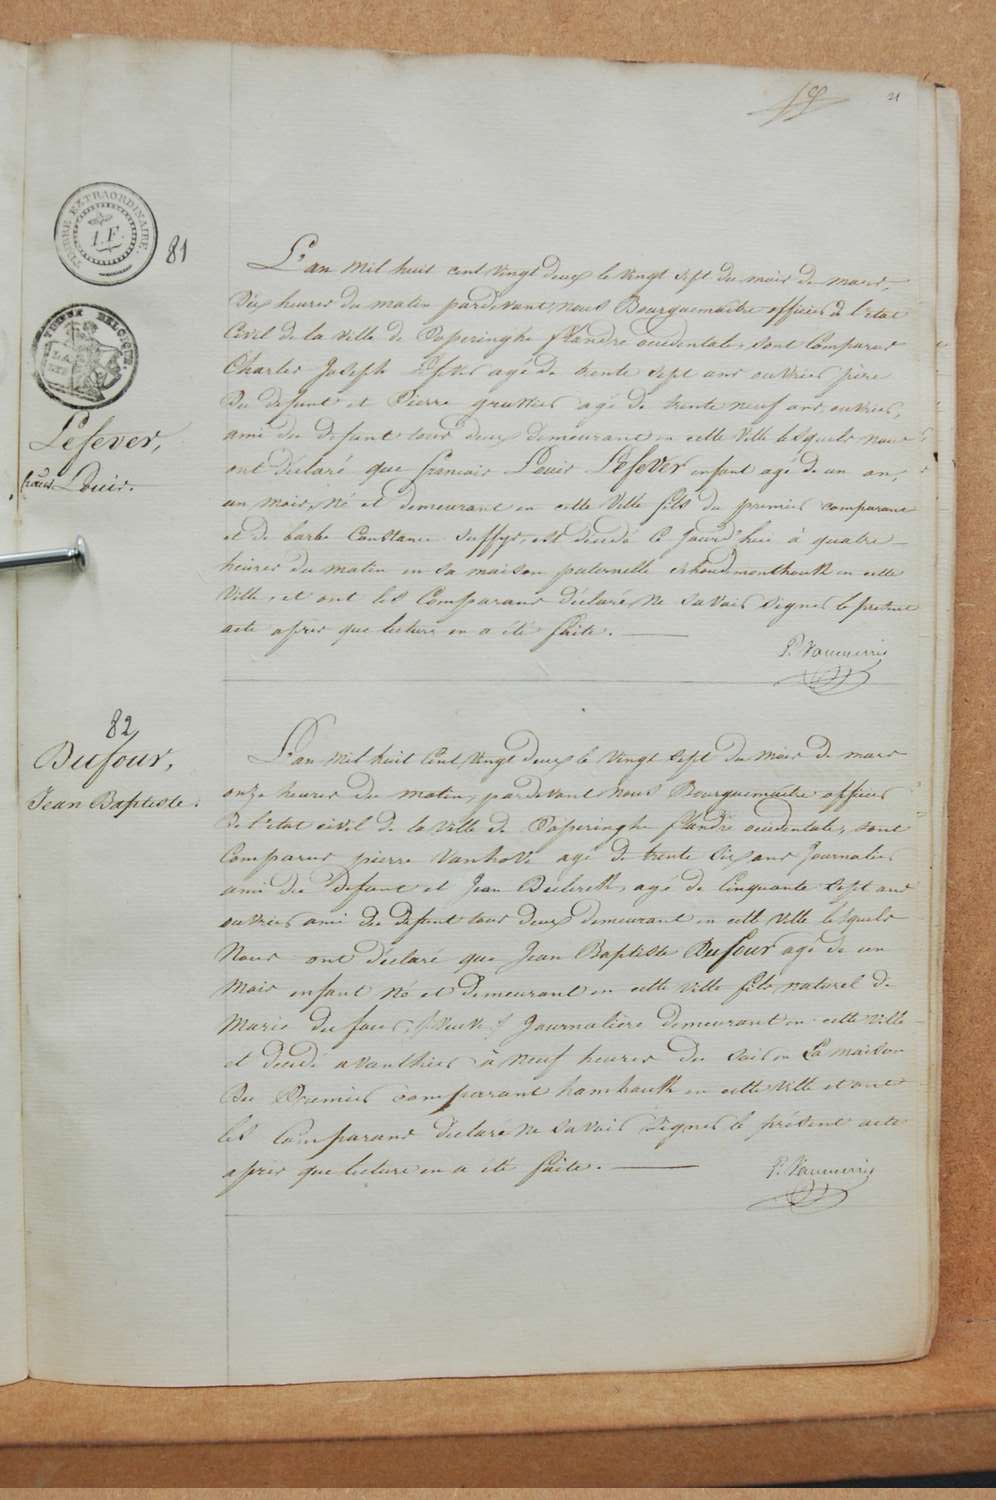 21
TIMBRE EXTRAORDINAIRE.
1.F.
81
L'an mil huit cent vingt deux le vingt sept du mois de mars,
dix heures du matin pardevant nous Bourguemaitre officier de l'état
Civil de la ville de Poperinghe flandre occidentale, sont Comparus
Charles Joseph Lefever agé de trente sept ans ouvrier père
du defunt et Pierre gruttier agé de trente neuf ans ouvrier,
Lefever,
ami du defunt tous deux demeurant en cette Ville lesquels nous
ont déclaré que francois Louis Lefever enfant agé de un an,
francois Louis.
un mois, Né et demeurant en cette Ville fils du premier comparant
et de barbe Constance est decedé ce Jourd'hui à quatre
heures du matin en sa maison paternelle en cette
Ville, et ont les Comparans déclaré ne savoir signer le present
acte après que lecture en a été faite.
82
Dufour,
Jean Baptiste.
L'an mil huit Cent vingt deux le vingt sept du mois de mars
onze heures du matin, pardevant nous Bourguemaitre officier
de l'état civil de la Ville de Poperinghe flandre occidentale, sont
Comparus pierre Vanhove agé de trente six ans Journalier
ami du defunt et Jean agé de Cinquante sept ans
ouvrier ami du defunt tous deux demeurant en cette Ville lesquels
Nous ont déclaré que Jean Baptiste Dufour agé de un
Mois enfant Né et demeurant en cette Ville fils naturel de
Marie dufour, Journaliere demeurant en cette Ville
et decedé avanthier à neuf heures du soir en la maison
du Premier comparant en cette Ville et ont
les Comparans déclaré ne savoir signer le présent acte
après que lecture en a été faite.